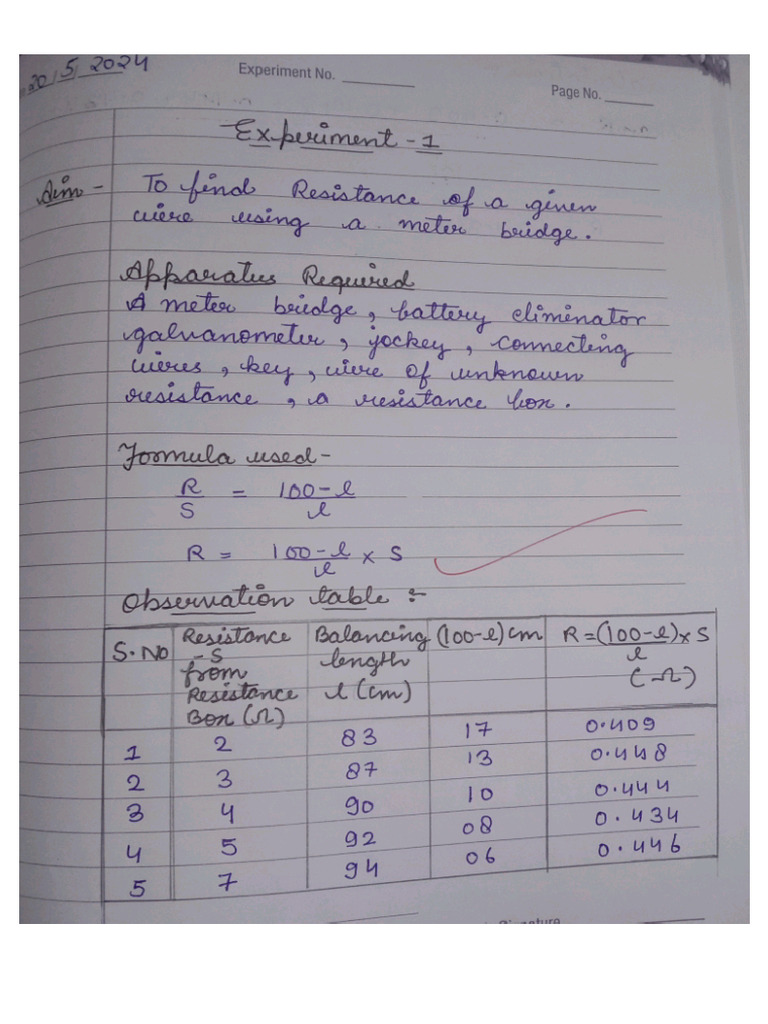 20/5/2024
Experiment No.
Page No.
Experiment - 1
Aim - To find Resistance of a given
wire using a meter bridge.
Apparatus Required
A meter bridge, battery eliminator
galvanometer, jockey, connecting
wires, key, wire of unknown
resistance, a resistance box.
Formula used -
R/S = 100-l/l
R = 100-l/l x S
Observation table :-
S.No | Resistance - S from Resistance Box (Ω) | Balancing length l (cm) | (100-l) cm | R = (100-l)/l x S (Ω)
1 | 2 | 83 | 17 | 0.409
2 | 3 | 87 | 13 | 0.448
3 | 4 | 90 | 10 | 0.444
4 | 5 | 92 | 08 | 0.434
5 | 7 | 94 | 06 | 0.446